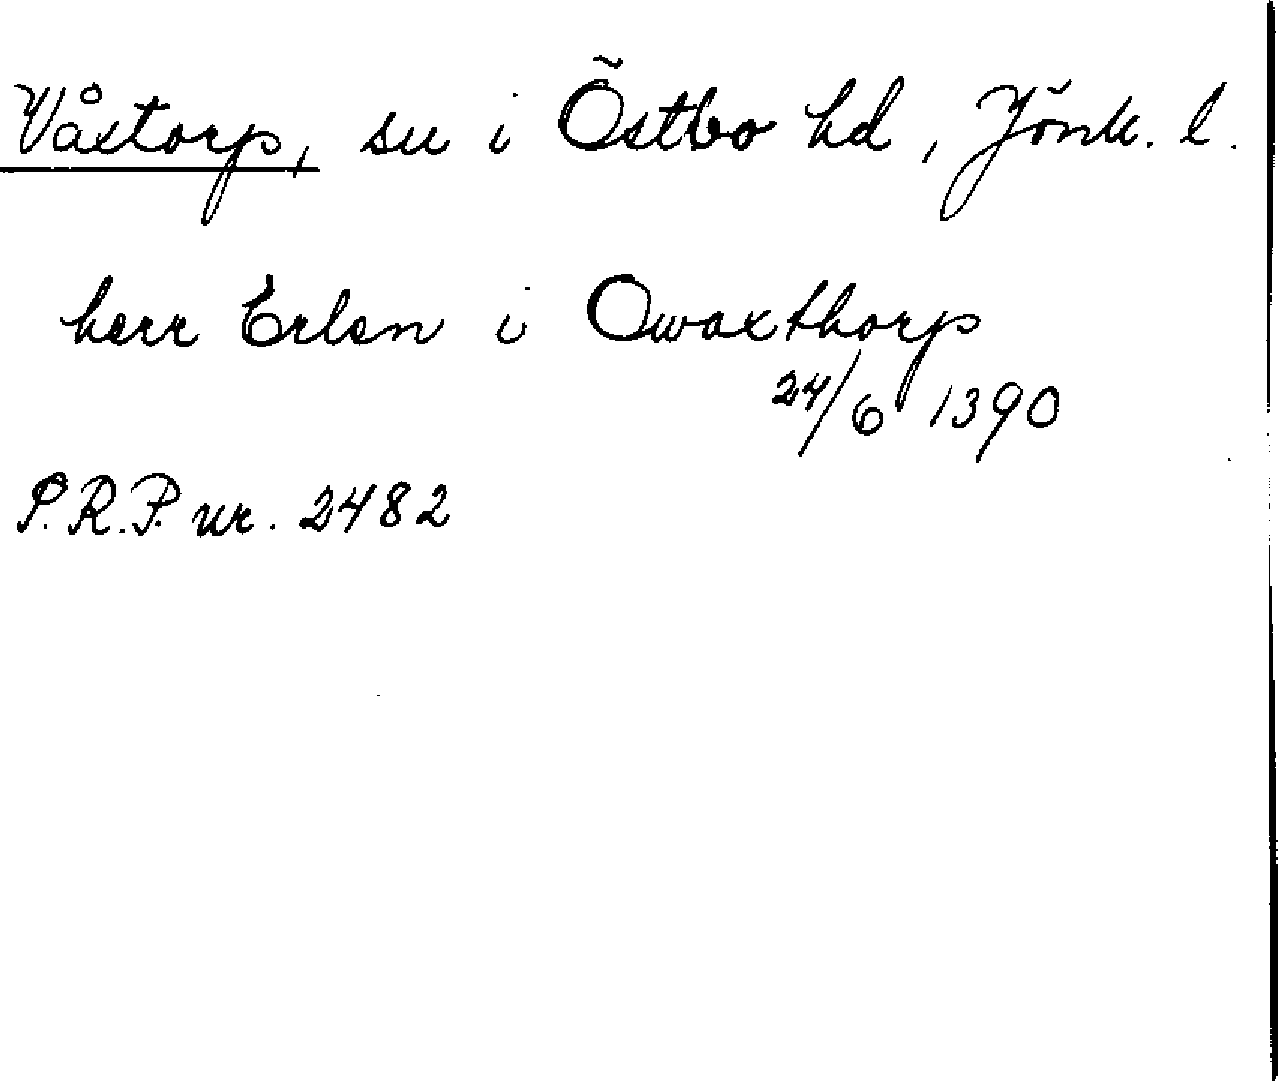 Våstorp, su i Östbo hd, Jönk. l.
herr Erlen i Owaxthorp
24/6 1390
P.R.P. nr. 2482